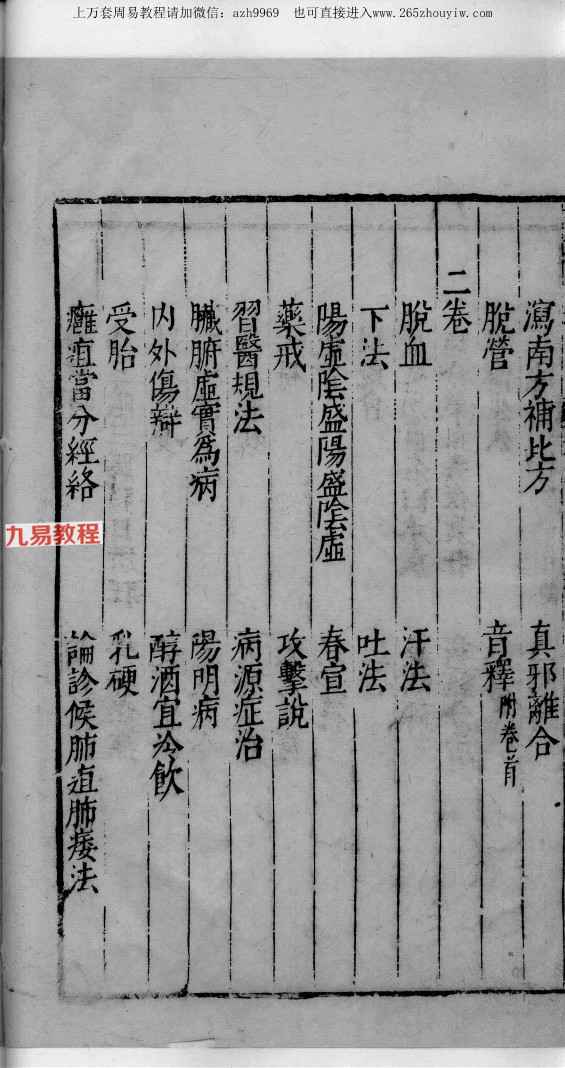 上万套周易教程请加微信：azh9969　也可直接进入www.265zhouyiw.com
瀉南方補北方　真邪離合
脫營　音釋附卷首
二卷
脫血　汗法
下法　吐法
陽虛陰盛陽盛陰虛　春宣
藥戒　攻擊說
習醫規法　病源症治
臟腑虛實為病　陽明病
內外傷辯　醇酒宜冷飲
受胎　乳硬
癰疽當分經絡　論診候肺疽肺痿法
九易教程